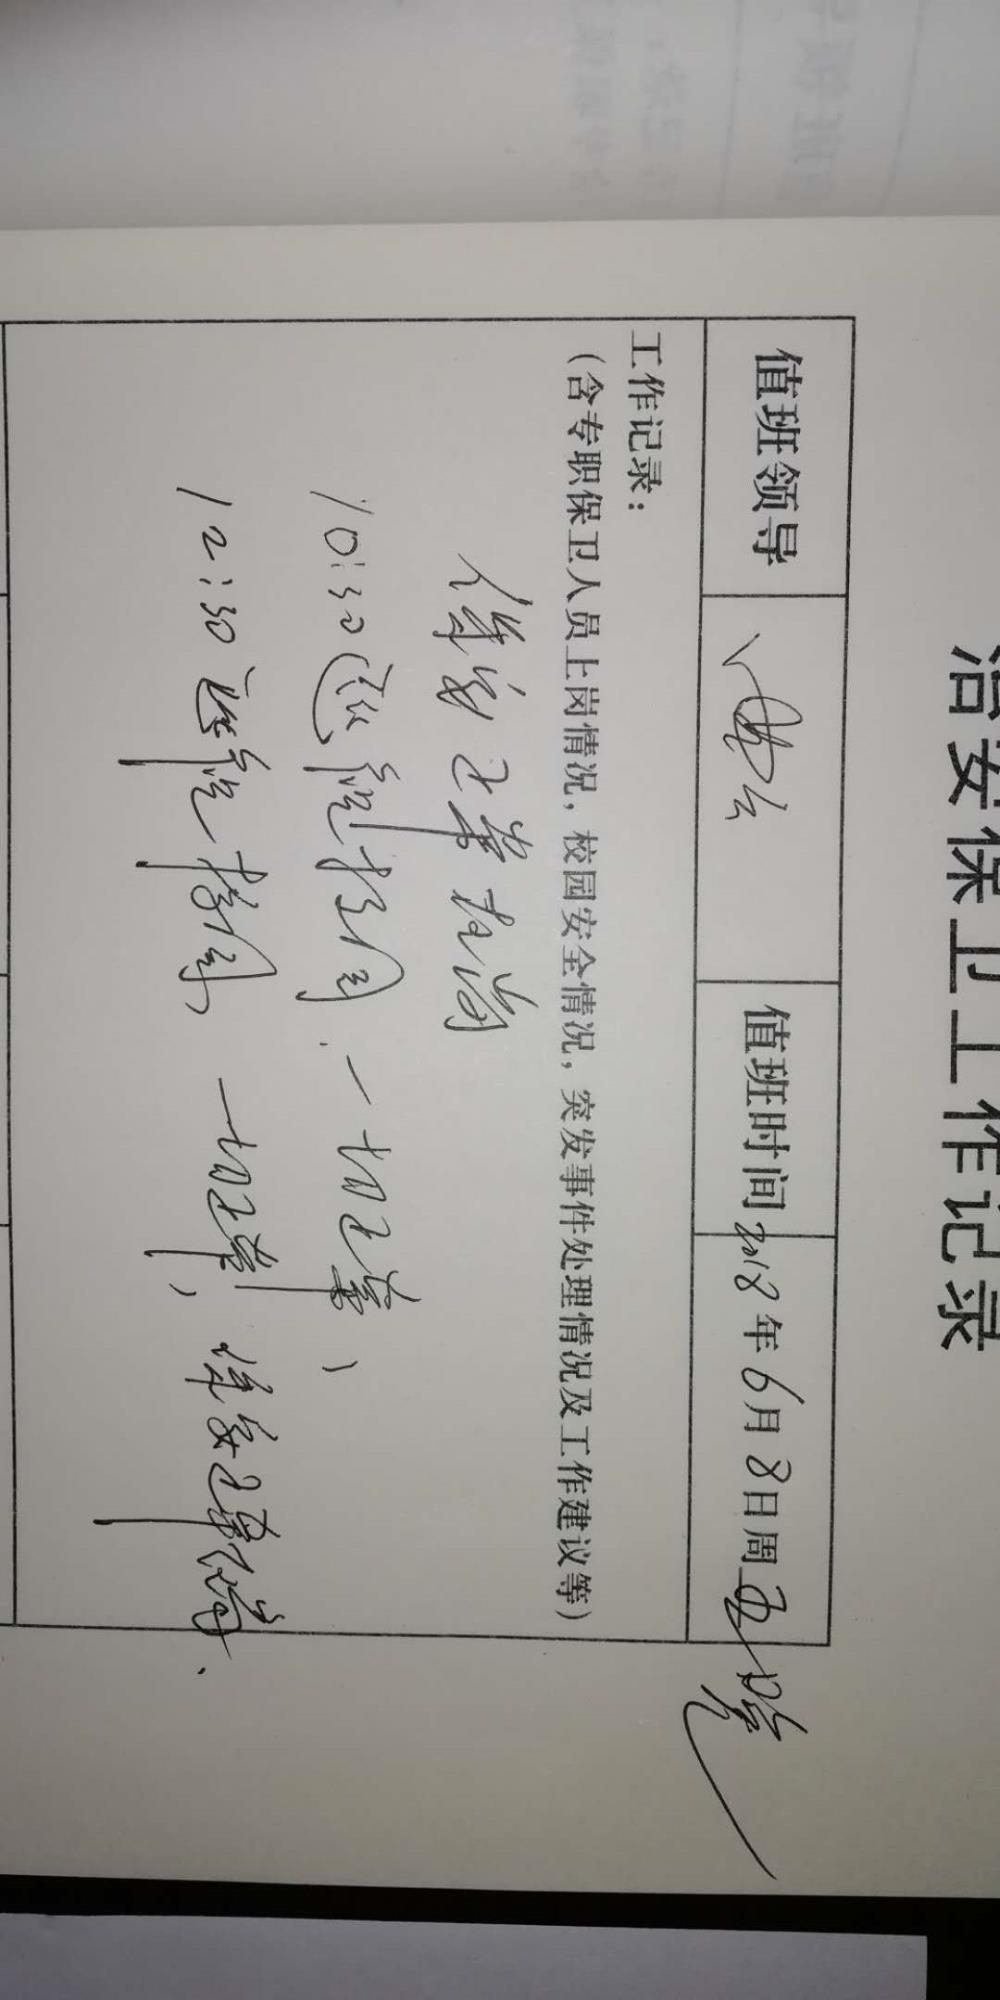 治安保卫工作记录
值班领导 值班时间 2018年6月8日周五晚
工作记录：
（含专职保卫人员上岗情况，校园安全情况，突发事件处理情况及工作建议等）
保安正常在岗
10:30巡视校园，一切正常，
12:30巡视校园，一切正常，保安正常在岗．